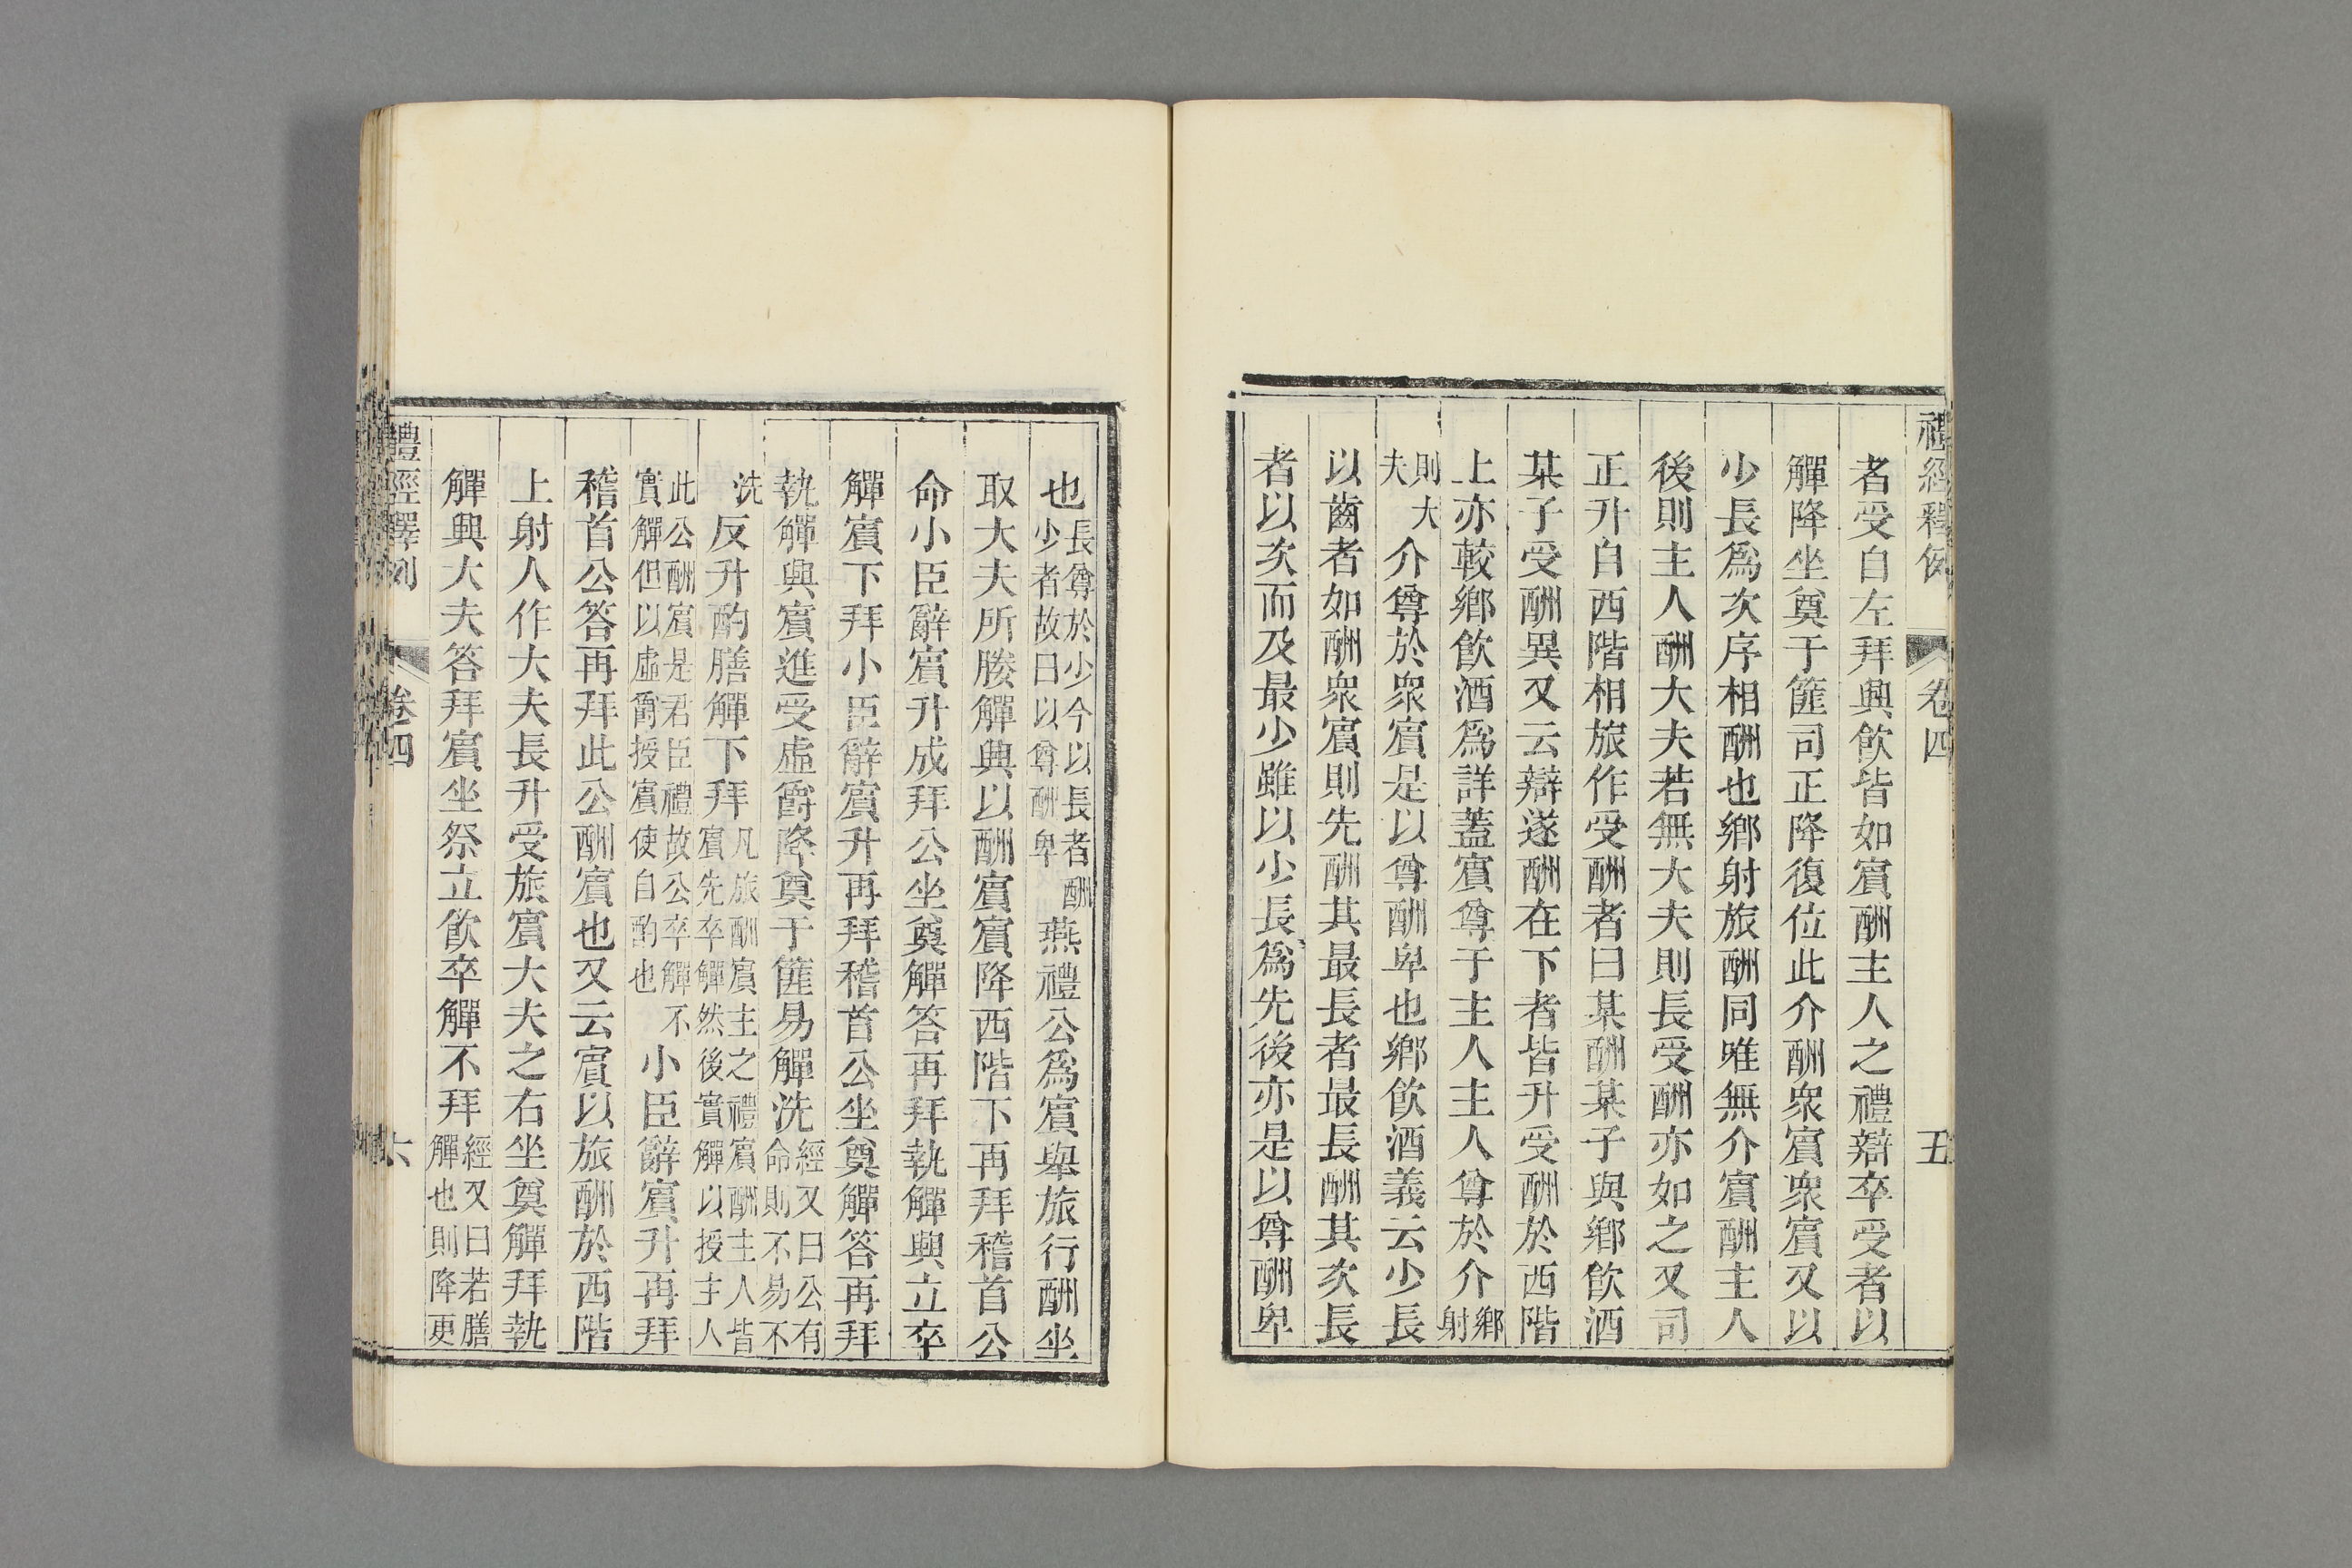 禮經釋例 卷四 五
者受自左拜興飮皆如賓酬主人之禮辯卒受者以
觶降坐奠于篚司正降復位此介酬衆賓衆賓又以
少長爲次序相酬也鄉射旅酬同唯無介賓酬主人
後則主人酬大夫若無大夫則長受酬亦如之又司
正升自西階相旅作受酬者曰某酬某子與鄉飮酒
某子受酬異又云辯遂酬在下者皆升受酬於西階
上亦較鄉飮酒爲詳蓋賓尊于主人主人尊於介鄉射
則大夫介尊於衆賓是以尊酬卑也鄉飮酒義云少長
以齒者如酬衆賓則先酬其最長者最長酬其次長
者以次而及最少雖以少長爲先後亦是以尊酬卑
也長尊於少今以長者酬少者故曰以尊酬卑燕禮公爲賓舉旅行酬坐
取大夫所媵觶興以酬賓賓降西階下再拜稽首公
命小臣辭賓升成拜公坐奠觶答再拜執觶興立卒
觶賓下拜小臣辭賓升再拜稽首公坐奠觶答再拜
執觶興賓進受虛爵降奠于篚易觶洗經又曰公有命則不易不
洗反升酌膳觶下拜凡旅酬賓主之禮賓酬主人皆賓先卒觶然後實觶以授主人
此公酬賓是君臣禮故公卒觶不實觶但以虛爵授賓使自酌也小臣辭賓升再拜
稽首公答再拜此公酬賓也又云賓以旅酬於西階
上射人作大夫長升受旅賓大夫之右坐奠觶拜執
觶興大夫答拜賓坐祭立飮卒觶不拜經又曰若膳觶也則降更
禮經釋例 卷四 六